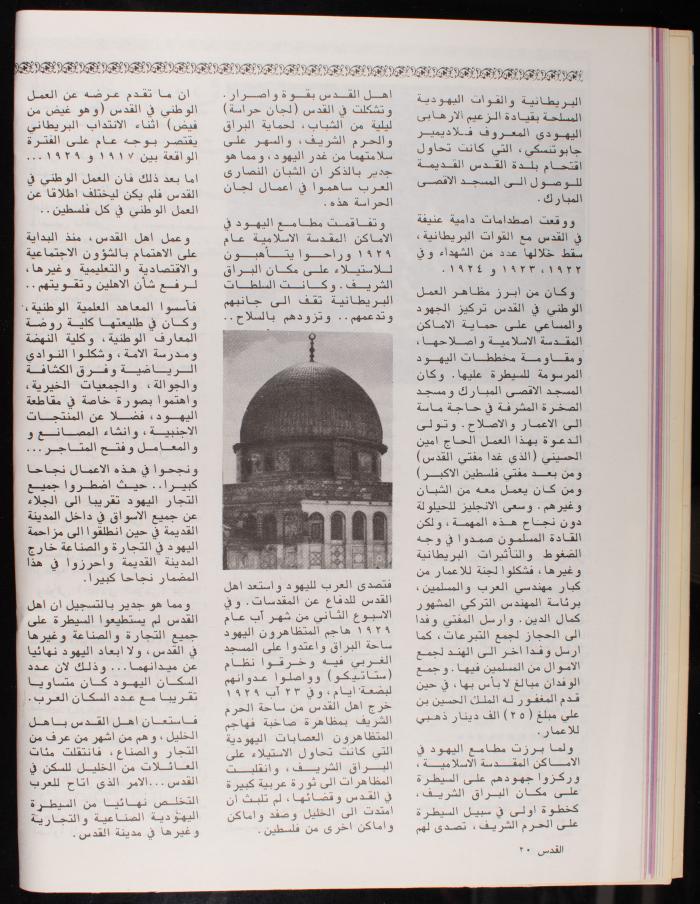 البريطانية والقوات اليهودية
المسلحة بقيادة الزعيم الارهابى
اليهودي المعروف فلاديمير
جابوتنسكى، التي كانت تحاول
اقتحام بلدة القدس القديمة
للوصول الى المسجد الاقصى
المبارك.
ووقعت اصطدامات دامية عنيفة
في القدس مع القوات البريطانية،
سقط خلالها عدد من الشهداء وفي
١٩٢٢، ١٩٢٣ و ١٩٢٤.
وكان من ابرز مظاهر العمل
الوطني في القدس تركيز الجهود
والمساعي على حماية الاماكن
المقدسة الاسلامية واصلاحها،
ومقاومة مخططات اليهود
المرسومة للسيطرة عليها. وكان
المسجد الاقصى المبارك ومسجد
الصخرة المشرفة في حاجة ماسة
الى الاعمار والاصلاح. وتولى
الدعوة بهذا العمل الحاج امين
الحسيني (الذي غدا مفتي القدس)
ومن بعد مفتي فلسطين الاكبر)
ومن كان يعمل معه من الشبان
وغيرهم. وسعى الانجليز للحيلولة
دون نجاح هذه المهمة، ولكن
القادة المسلمون صمدوا في وجه
الضغوط والتأثيرات البريطانية
وغيرها، فشكلوا لجنة للاعمار من
كبار مهندسي العرب والمسلمين،
برئاسة المهندس التركي المشهور
كمال الدين. وارسل المفتي وفدا
الى الحجاز لجمع التبرعات، كما
ارسل وفدا اخر الى الهند لجمع
الاموال من المسلمين فيها. وجمع
الوفدان مبالغ لا بأس بها، في حين
قدم المغفور له الملك الحسين بن
علي مبلغ (٢٥) الف دينار ذهبي
للاعمار.
ولما برزت مطامع اليهود في
الاماكن المقدسة الاسلامية،
وركزوا جهودهم على السيطرة
على مكان البراق الشريف،
كخطوة اولى في سبيل السيطرة
على الحرم الشريف، تصدى لهم
اهل القدس بقوة واصرار.
وتشكلت في القدس (لجان حراسة)
ليلية من الشباب، لحماية البراق
والحرم الشريف، والسهر على
سلامتهما من غدر اليهود، ومما هو
جدير بالذكر ان الشبان النصارى
العرب ساهموا في اعمال لجان
الحراسة هذه.
وتفاقمت مطامع اليهود في
الاماكن المقدسة الاسلامية عام
١٩٢٩ وراحوا يتأهبون
للاستيلاء على مكان البراق
الشريف. وكانت السلطات
البريطانية تقف الى جانبهم
وتدعمهم.. وتزودهم بالسلاح..
فتصدى العرب لليهود واستعد اهل
القدس للدفاع عن المقدسات. وفي
الاسبوع الثاني من شهر آب عام
١٩٢٩ هاجم المتظاهرون اليهود
ساحة البراق واعتدوا على المسجد
الغربي فيه وخرقوا نظام
(ستاتيكو) وواصلوا عدوانهم
لبضعة ايام، وفي ٢٣ آب ١٩٢٩
خرج اهل القدس من ساحة الحرم
الشريف بمظاهرة صاخبة فهاجم
المتظاهرون العصابات اليهودية
التي كانت تحاول الاستيلاء على
البراق الشريف، وانقلبت
المظاهرات الى ثورة عربية كبيرة
في القدس وقضائها، لم تلبث ان
امتدت الى الخليل وصفد واماكن
واماكن اخرى من فلسطين.
ان ما تقدم عرضه عن العمل
الوطني في القدس (وهو غيض من
فيض) اثناء الانتداب البريطاني
يقتصر بوجه عام على الفترة
الواقعة بين ١٩١٧ و ١٩٢٩...
اما بعد ذلك فان العمل الوطني في
القدس فلم يكن ليختلف اطلاقا عن
العمل الوطني في كل فلسطين..
وعمل اهل القدس، منذ البداية
على الاهتمام بالشؤون الاجتماعية
والاقتصادية والتعليمية وغيرها،
لرفع شأن الاهلين وتقويتهم..
فأسسوا المعاهد العلمية الوطنية،
وكان في طليعتها كلية روضة
المعارف الوطنية، وكلية النهضة
ومدرسة الامة، وشكلوا النوادي
الرياضية وفرق الكشافة
والجوالة، والجمعيات الخيرية،
واهتموا بصورة خاصة في مقاطعة
اليهود، فضلا عن المنتجات
الاجنبية، وانشاء المصانع و
والمعامل وفتح المتاجر...
ونجحوا في هذه الاعمال نجاحا
كبيرا.. حيث اضطروا جميع
التجار اليهود تقريبا الى الجلاء
عن جميع الاسواق في داخل المدينة
القديمة في حين انطلقوا الى مزاحمة
اليهود في التجارة والصناعة خارج
المدينة القديمة واحرزوا في هذا
المضمار نجاحا كبيرا.
ومما هو جدير بالتسجيل ان اهل
القدس لم يستطيعوا السيطرة على
جميع التجارة والصناعة وغيرها
في القدس، ولا ابعاد اليهود نهائيا
عن ميدانهما... وذلك لان عدد
السكان اليهود كان متساويا
تقريبا مع عدد السكان العرب.
فاستعان اهل القدس باهل
الخليل، وهم من اشهر من عرف من
التجار والصناع، فانتقلت مئات
العائلات من الخليل للسكن في
القدس... الامر الذى اتاح للعرب
التخلص نهائيا من السيطرة
اليهودية الصناعية والتجارية
وغيرها في مدينة القدس.
القدس ٢٠